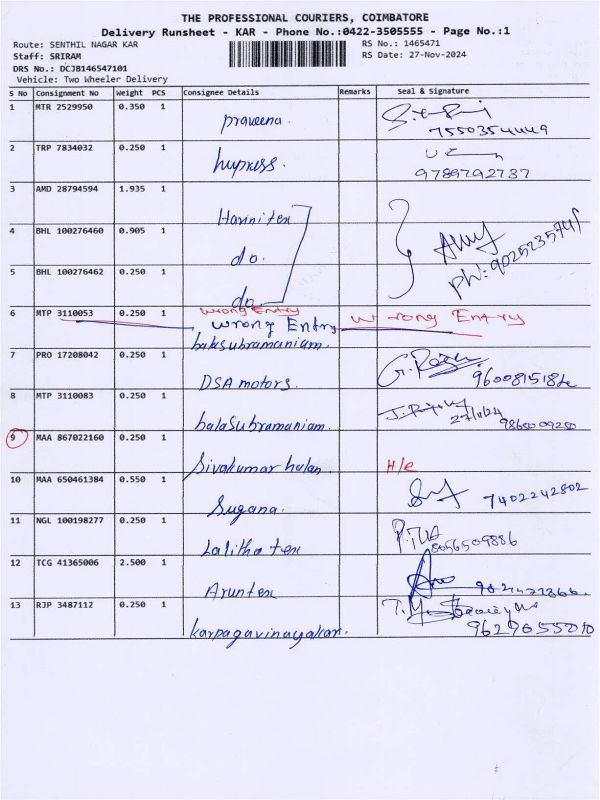 THE PROFESSIONAL COURIERS, COIMBATORE
Delivery Runsheet - KAR - Phone No.:0422-3505555 - Page No.:1
Route: SENTHIL NAGAR KAR RS No.: 1465471
Staff: SRIRAM RS Date: 27-Nov-2024
DRS No.: DCJB146547101
Vehicle: Two Wheeler Delivery
S No Consignment No Weight PCS Consignee Details Remarks Seal & Signature
1 MTR 2529950 0.350 1
praveena.
7550354449
2 TRP 7834032 0.250 1
hupress.
9789792737
3 AMD 28794594 1.935 1
Harinitex
4 BHL 100276460 0.905 1
do.
5 BHL 100276462 0.250 1
do.
ph:
6 MTP 3110053 0.250 1 wrong Entry wrong Entry
wrong Entry
balasubramaniam.
7 PRO 17208042 0.250 1
DSA motors.
8 MTP 3110083 0.250 1
balasubramaniam.
9865009250
9 MAA 867022160 0.250 1
Sivakumar H/e
10 MAA 650461384 0.550 1
Sugana. 7402242802
11 NGL 100198277 0.250 1
Lalitha tex 8056509886
12 TCG 41365006 2.500 1
Aruntex
13 RJP 3487112 0.250 1
karpagavinayakar.